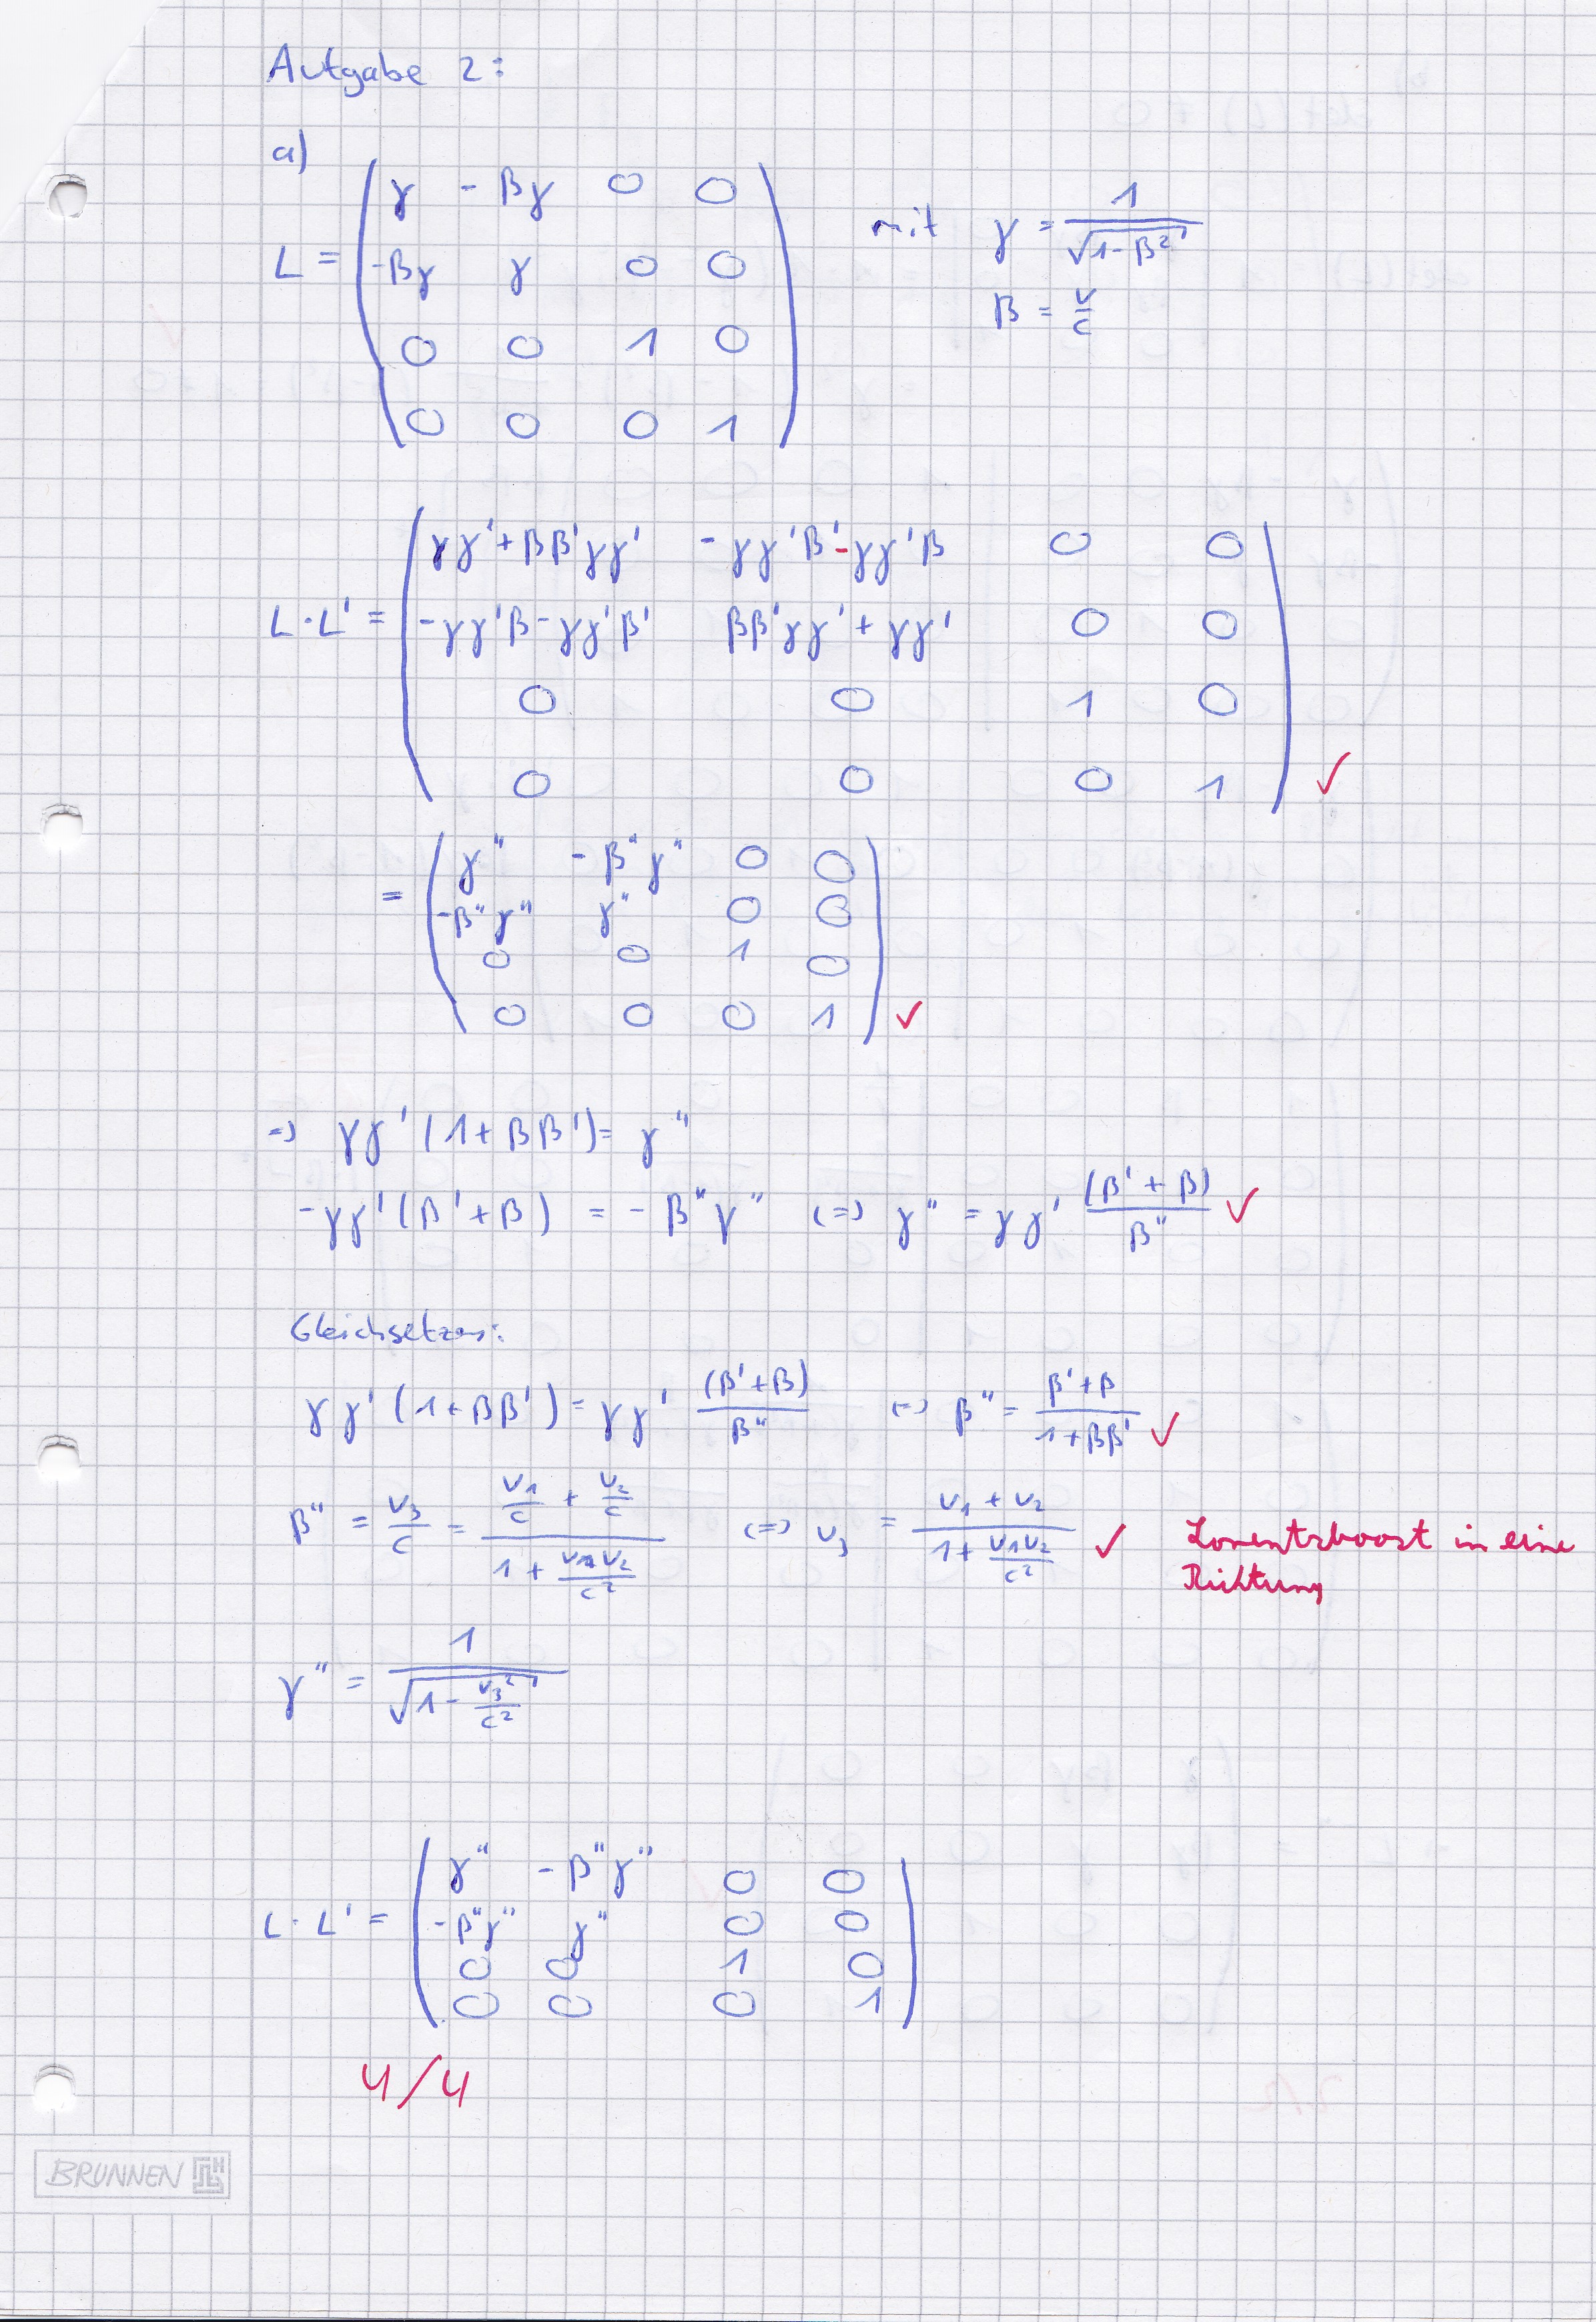 Aufgabe 2:
a)
L = ( γ  -βγ  0  0
-βγ  γ  0  0
0  0  1  0
0  0  0  1 )
mit γ = 1/√(1-β²)
β = v/c
L·L' = ( γγ'+ββ'γγ'  -γγ'β'-γγ'β  0  0
-γγ'β-γγ'β'  ββ'γγ'+γγ'  0  0
0  0  1  0
0  0  0  1 ) ✓
= ( γ''  -β''γ''  0  0
-β''γ''  γ''  0  0
0  0  1  0
0  0  0  1 ) ✓
=> γγ'(1+ββ') = γ''
-γγ'(β'+β) = -β''γ'' <=> γ'' = γγ' (β'+β)/β'' ✓
Gleichsetzen:
γγ'(1+ββ') = γγ' (β'+β)/β'' <=> β'' = (β'+β)/(1+ββ') ✓
β'' = v₃/c = (v₁/c + v₂/c)/(1 + v₁v₂/c²) <=> v₃ = (v₁+v₂)/(1 + v₁v₂/c²) ✓ Lorentzboost in eine
Richtung
γ'' = 1/√(1 - v₃²/c²)
L·L' = ( γ''  -β''γ''  0  0
-β''γ''  γ''  0  0
0  0  1  0
0  0  0  1 )
4/4
BRUNNEN